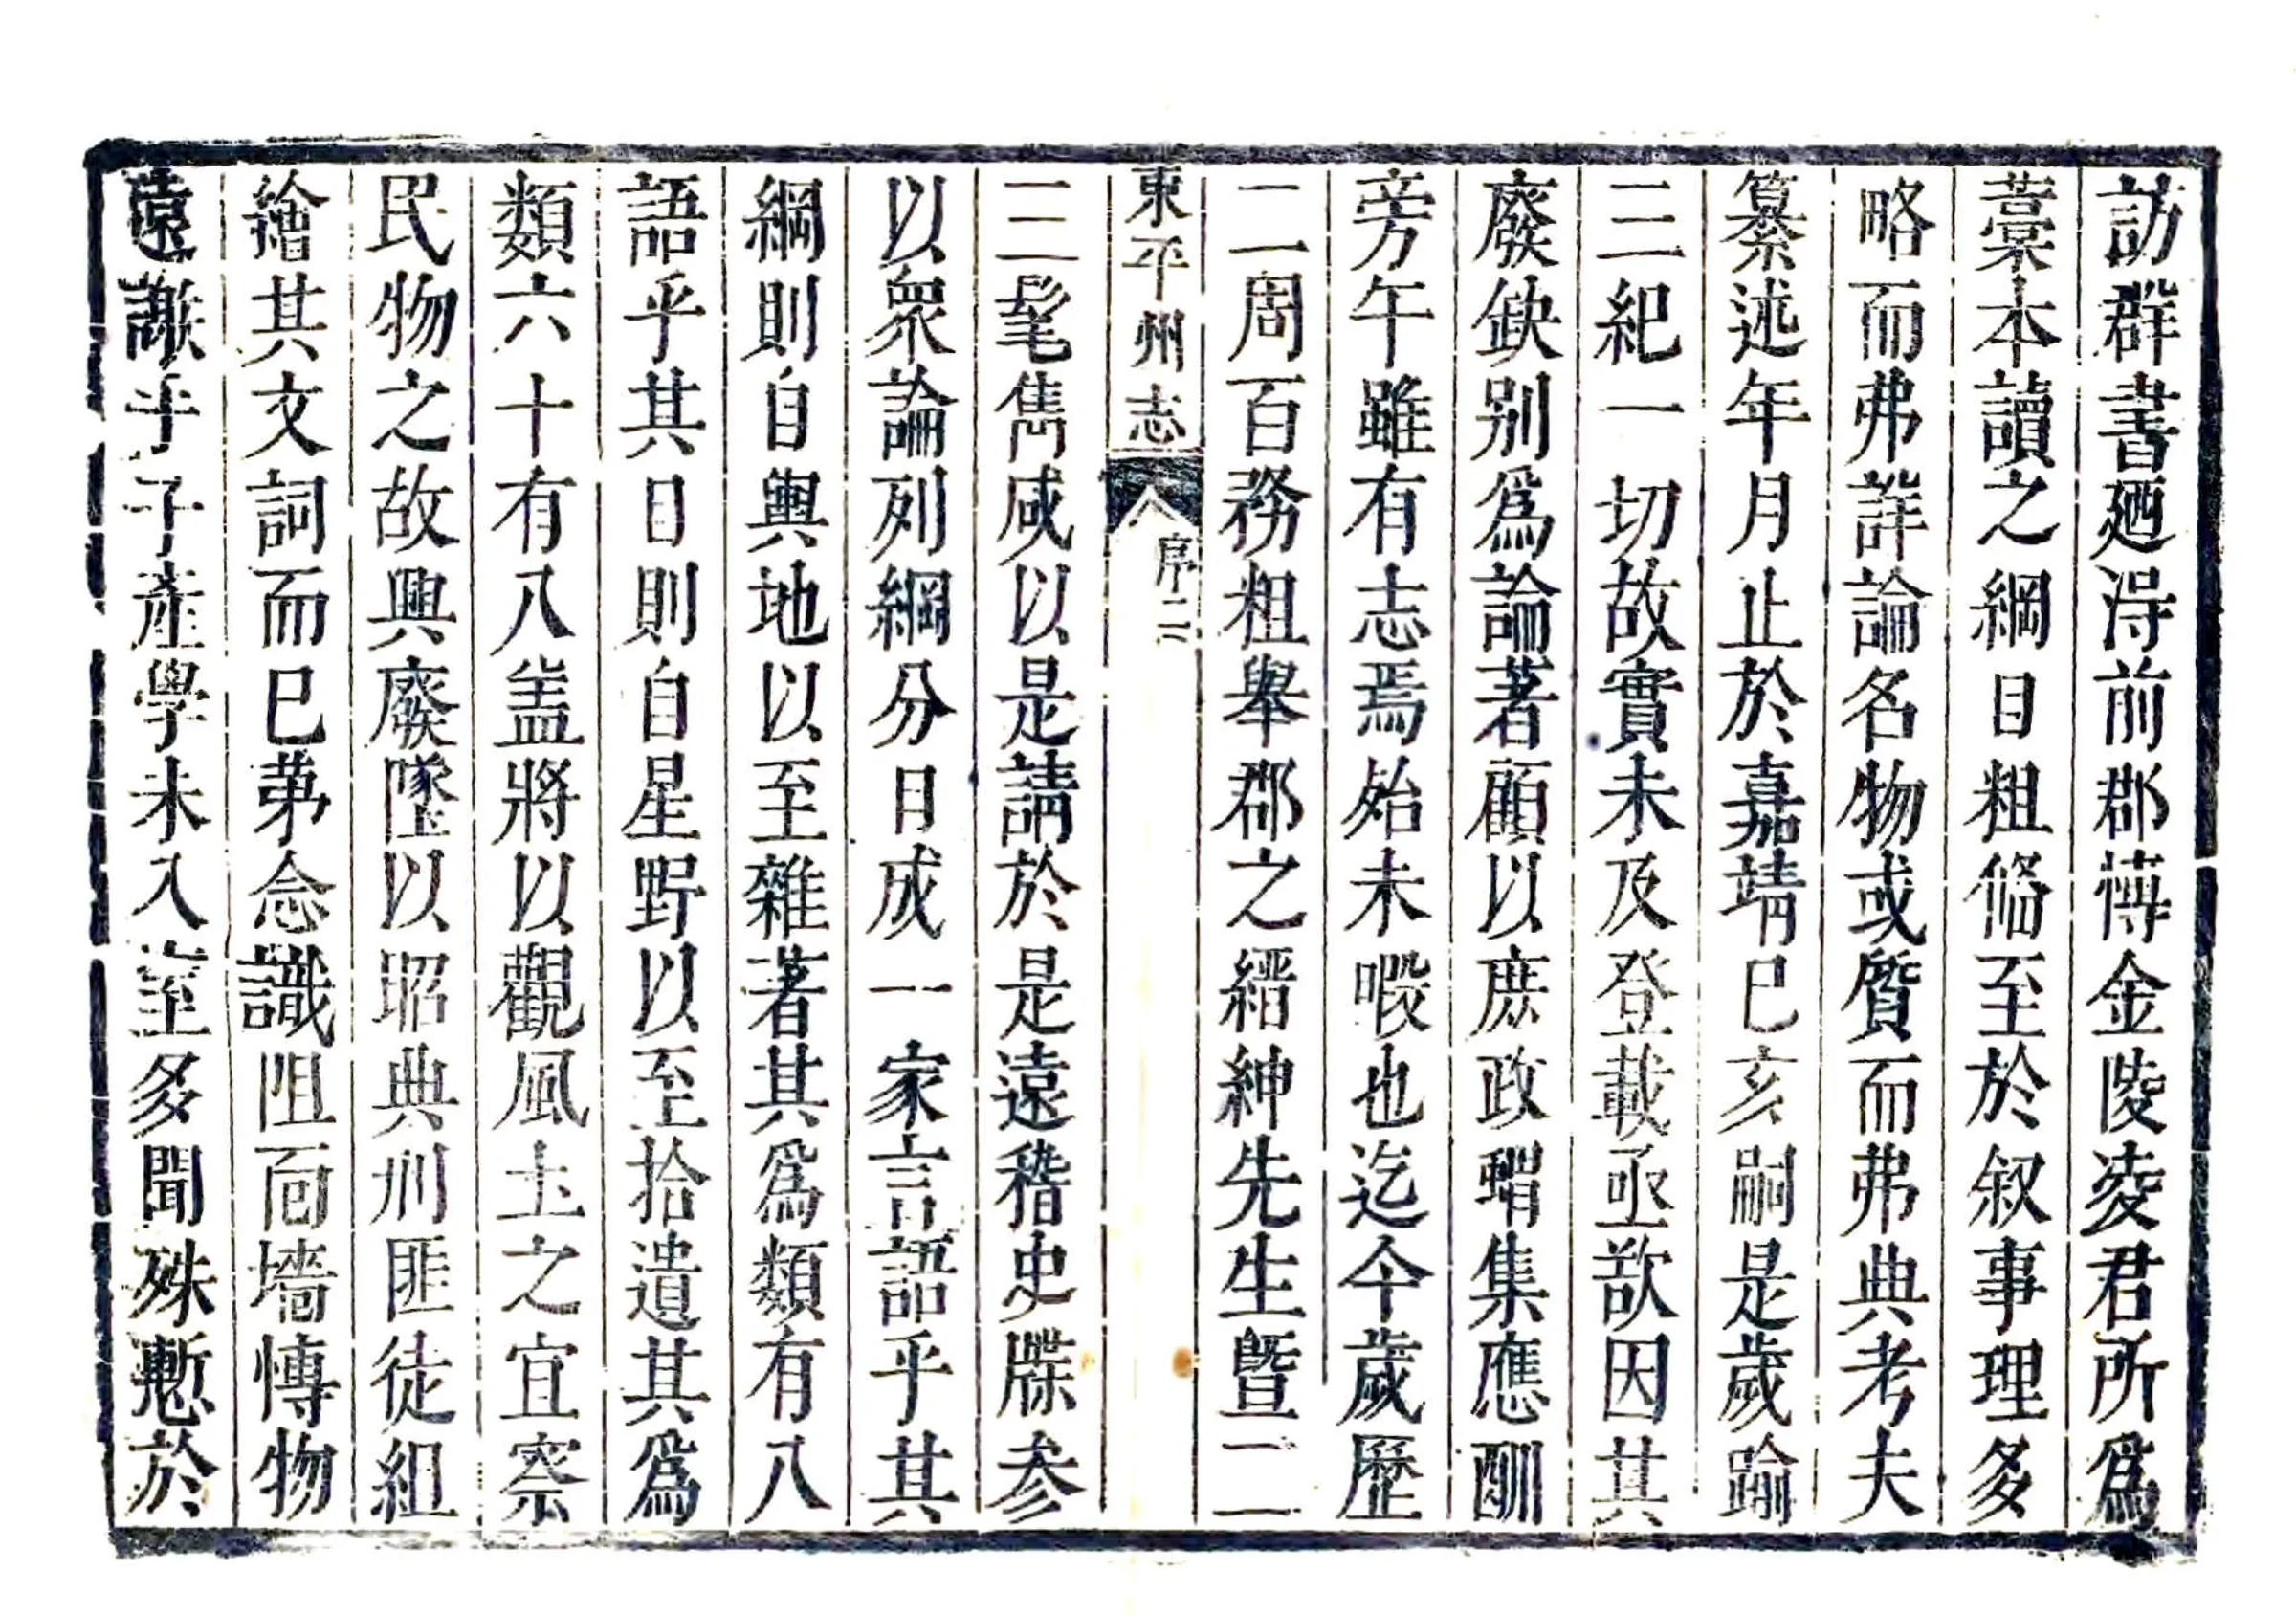 訪群書廼淂前郡博金陵凌君所爲
藁本讀之綱目粗偹至於叙事理多
略而弗詳論名物或質而弗典考夫
纂述年月止於嘉靖巳亥嗣是歲踰
三紀一切故實未及登載亟欲因其
廢缺别爲論著顧以庶政蝟集應酬
旁午雖有志焉始未暇也迄今歲歷
二周百務粗舉郡之縉紳先生暨二
東平州志
序二
三髦雋咸以是請於是遠稽史牒参
以衆論列綱分目成一家言語乎其
綱則自輿地以至雜著其爲類有八
語乎其目則自星野以至拾遺其爲
類六十有八盖將以觀風土之宜察
民物之故興廢墜以昭典刑匪徒組
繪其文詞而巳苐念識阻面墻愽物
遠謝乎子產學未入室多聞殊慙於